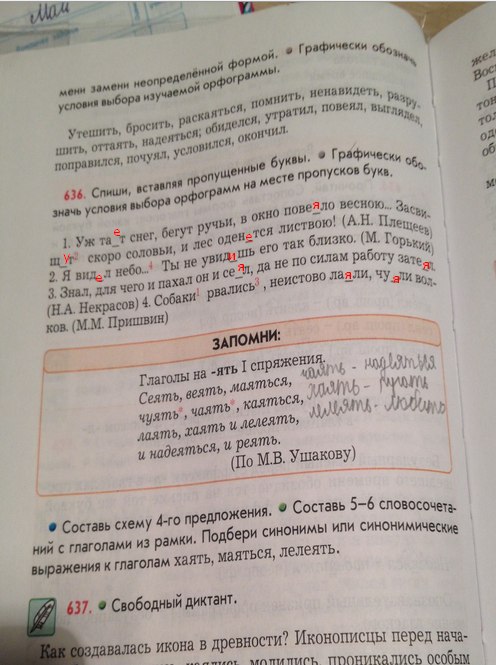 Май
мени замени неопределённой формой. • Графически обозначь
условия выбора изучаемой орфограммы.
Утешить, бросить, раскаяться, помнить, ненавидеть, разру-
шить, оттаять, надеяться; обиделся, утратил, повеял, выглядел,
поправился, почуял, условился, окончил.
636. Спиши, вставляя пропущенные буквы. • Графически обо-
значь условия выбора орфограмм на месте пропусков букв.
1. Уж та_е_т снег, бегут ручьи, в окно пове_я_ло весною... Засви-
щ_у_т² скоро соловьи, и лес оден_е_тся листвою! (А.Н. Плещеев)
2. Я вид_е_л небо..⁴ Ты не увид_и_шь его так близко. (М. Горький)
3. Знал, для чего и пахал он и се_я_л, да не по силам работу зате_я_л.
(Н.А. Некрасов) 4. Собаки¹ рвались³, неистово ла_я_ли, чу_я_ли вол-
ков. (М.М. Пришвин)
ЗАПОМНИ:
Глаголы на -ять I спряжения.
Сеять, веять, маяться, чаять - надеяться
чуять*, чаять*, каяться, хаять - ругать
лаять, хаять и лелеять, лелеять - любить
и надеяться, и реять.
(По М.В. Ушакову)
• Составь схему 4-го предложения. • Составь 5–6 словосочета-
ний с глаголами из рамки. Подбери синонимы или синонимические
выражения к глаголам хаять, маяться, лелеять.
637. • Свободный диктант.
Как создавалась икона в древности? Иконописцы перед нача-
каялись, молились, проникались особым